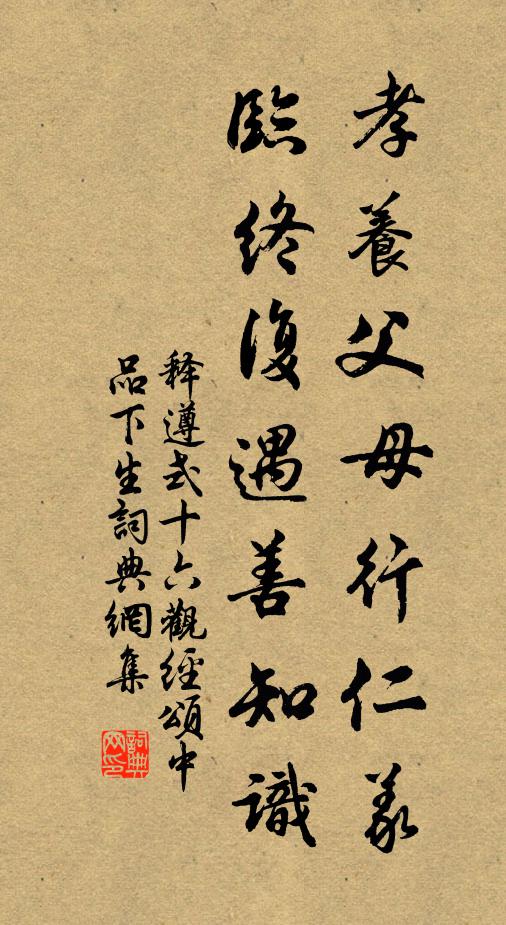 孝養父母行仁義
臨終復遇善知識
释遵式十六觀經頌中
品下生詞典網集
詞典
网印